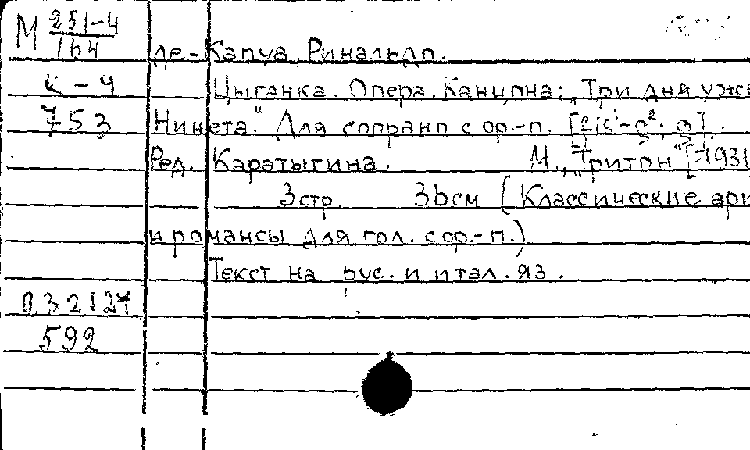 М 251-4
164
де-Капуа, Ринальдо.
К-4
Цыганка. Опера. Канцона: "Три дня уж
753
Нинета." Для сопрано с ор.-п. [
Ред. Каратыгина. М., "Тритон" [1931
3 стр. 36 см (Классические ари
и романсы для гол. с ор.-п.)
Текст на рус. и итал. яз.
592